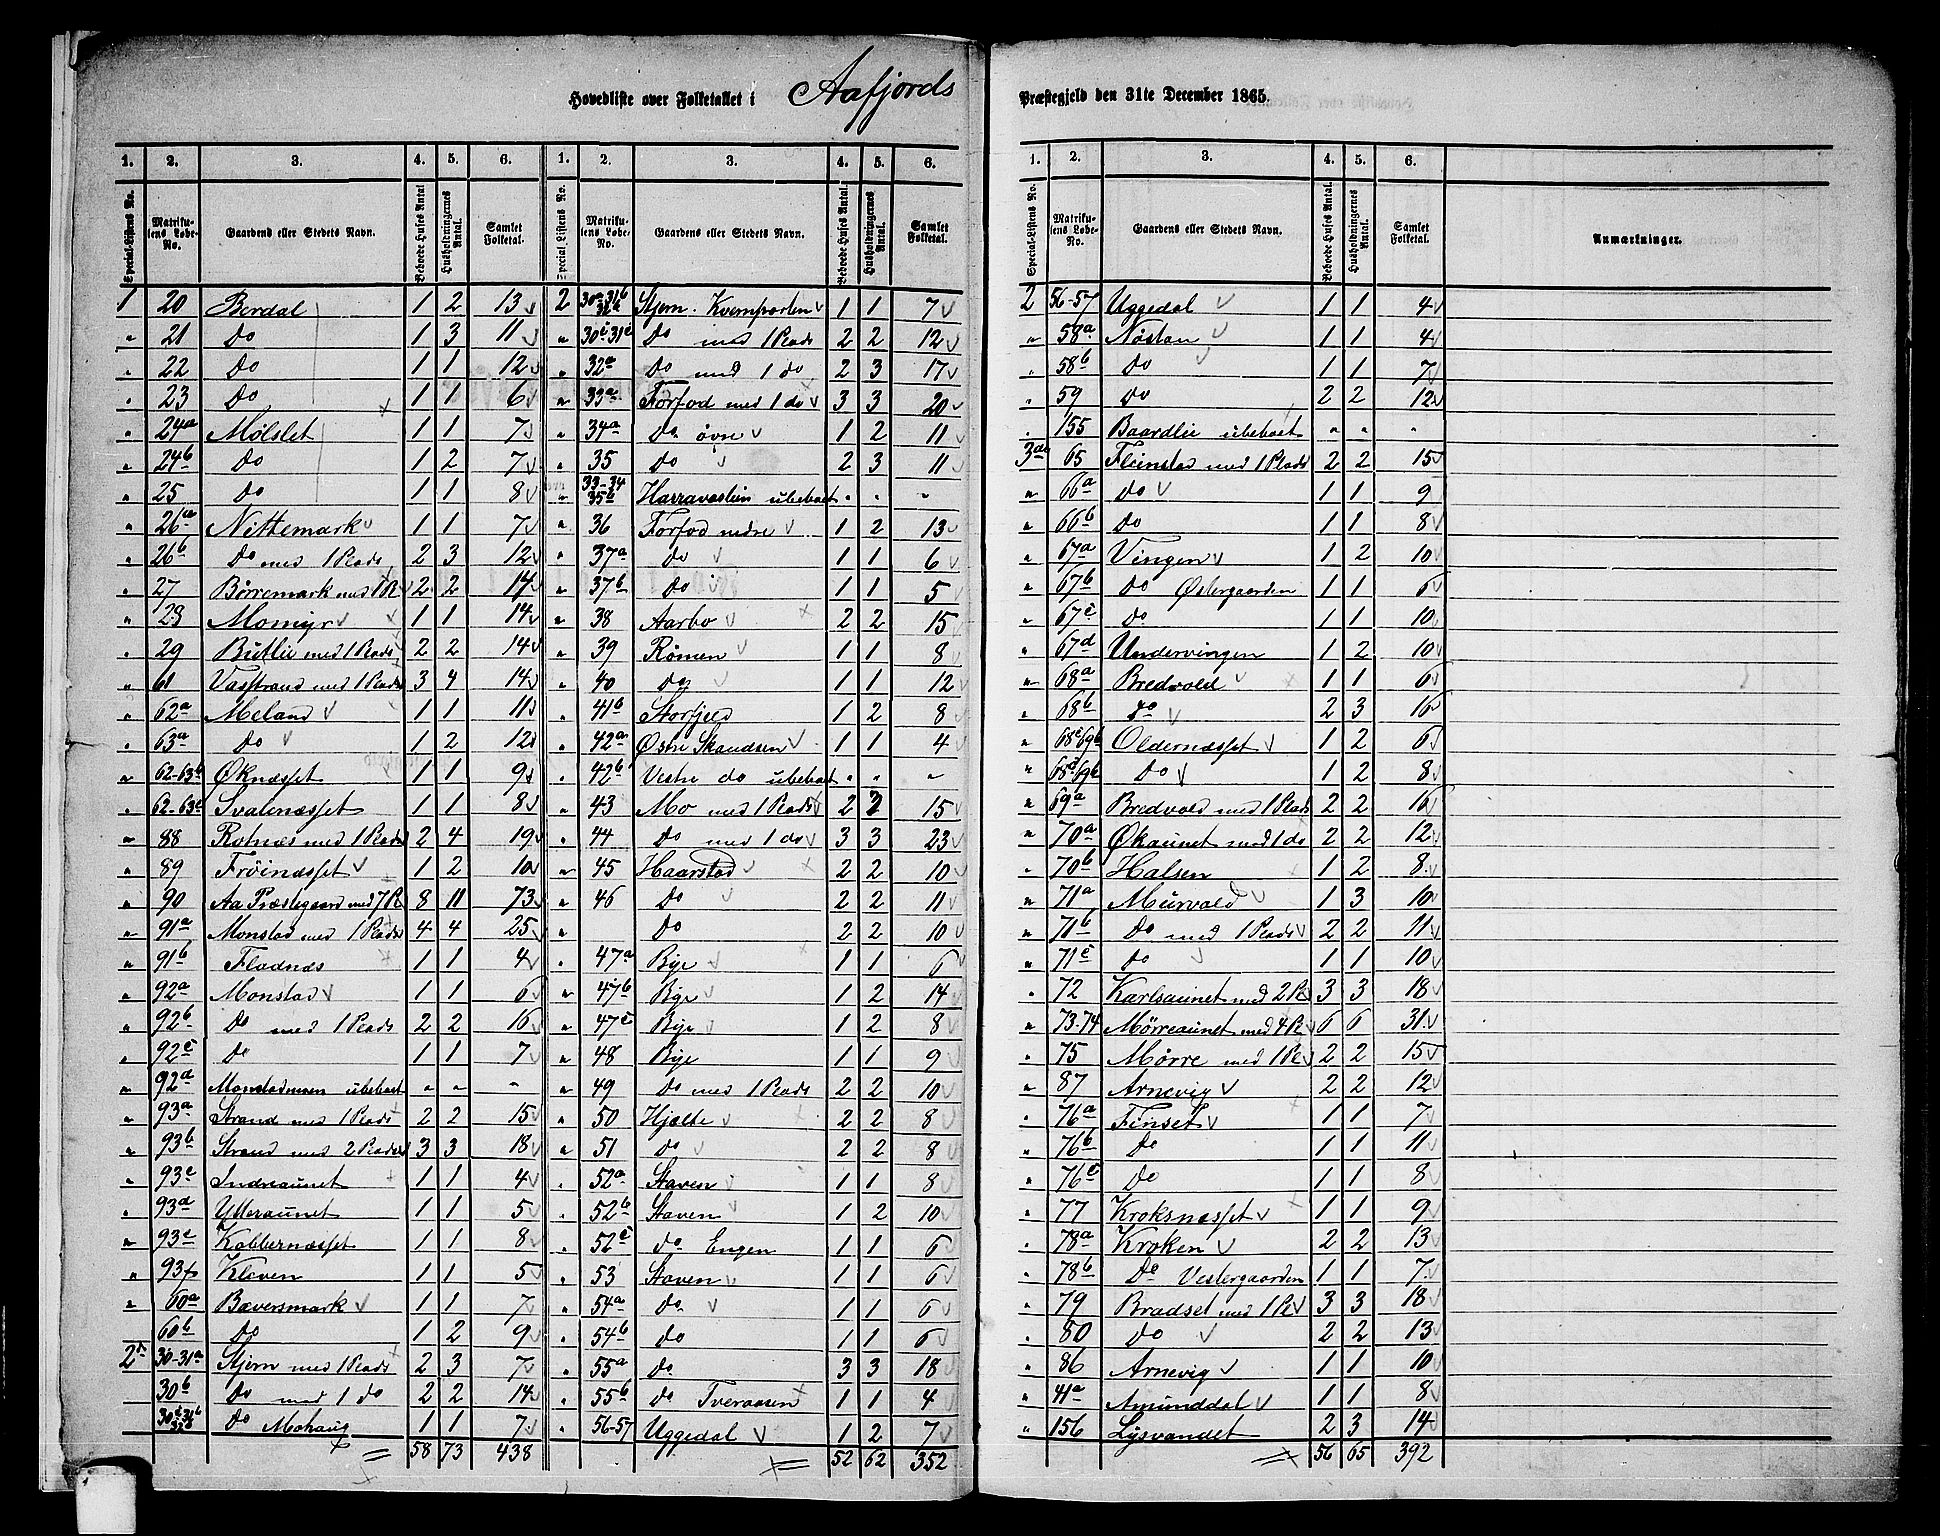 Hovedliste over Folketallet i Aafjords Præstegjeld den 31te December 1865.
1. 2. 3. 4. 5. 6. 1. 2. 3. 4. 5. 6.
Special-Listens No. Matrikulens Løbe-No. Gaardens eller Stedets Navn. Beboede Huses Antal. Husholdningernes Antal. Samlet Folketal. Special-Listens No. Matrikulens Løbe-No. Gaardens eller Stedets Navn. Beboede Huses Antal. Husholdningernes Antal. Samlet Folketal.
1 20 Berdal 1 2 13
" 21 Do 1 3 11
" 22 Do 1 1 12
" 23 Do 1 1 6
" 24a Mølslet 1 1 7
" 24b Do 1 2 7
" 25 Do 1 1 8
" 26a Nittemark 1 1 7
" 26b Do med 1 Plads 2 3 12
" 27 Børremark med 1 Pl 2 2 14
" 28 Momyr 1 1 14
" 29 Butlie med 1 Plads 2 2 14
" 61 Vasstrand med 1 Plads 3 4 14
" 62a Meland 1 1 11
" 63a Do 1 2 12
" 62-63b Øknæsset 1 1 9
" 62-63c Svalenæsset 1 1 8
" 88 Rotnæs med 1 Plads 2 4 19
" 89 Frøinæsset 1 2 10
" 90 Aa Præstegaard med 7 Pl 8 11 73
" 91a Monstad med 1 Plads 4 4 25
" 91b Fladnæs 1 1 4
" 92a Monstad 1 1 6
" 92b Do med 1 Plads 2 2 16
" 92c Do 1 1 7
" 92d Monstadmoen ubeboet " " "
" 93a Strand med 1 Plads 2 2 15
" 93b Strand med 2 Pladse 3 3 18
" 93c Indreaunet 1 1 4
" 93d Ytteraunet 1 1 5
" 93e Kobbernæsset 1 1 8
" 93f Kleven 1 1 5
" 60a Bæversmark 1 1 7
60b Do 1 2 9
2 30-31a Stjern med 1 Plads 2 3 7
30b Do med 1 do 2 2 14
Do Mohaug 1 1 7
58 73 438
2 Stjern Kvernporten 1 1 7
" 30c-31c Do med 1 Plads 2 2 12
" 32a Do med 1 do 2 3 17
" 33a Forfod med 1 do 3 3 20
" 34a Do øvre 1 2 11
" 35 Do 2 3 11
" 33-34 35b Harravaslien ubeboet " " "
" 36 Forfod nedre 1 2 13
" 37a do 1 1 6
" 37b Do 1 1 5
" 38 Aarbo 2 2 15
" 39 Rømen 1 1 8
" 40 do 1 1 12
" 41b Storfjeld 1 2 8
" 42a Østre Skaudsen 1 1 4
" 42b Vestre do ubeboet " " "
" 43 Mo med 1 Plads 2 3 15
" 44 do med 1 do 3 3 23
" 45 Haarstad 2 2 10
" 46 Do 2 2 11
" Do 2 2 10
" 47a Bye 1 1 6
" 47b Bye 1 2 14
" 47c Bye 1 2 8
" 48 Bye 1 1 9
" 49 Do med 1 Plads 2 2 10
" 50 Hjelte 2 2 8
" 51 Do 2 2 8
" 52a Staven 1 1 8
" 52b Staven 1 2 10
" 52c do Engen 1 1 6
" 53 Staven 1 1 6
" 54a do 1 1 6
" 54b do 1 1 6
" 55a do 3 3 18
" 55b do Tveraasen 1 1 4
" 56-57 Uggedal 1 2 7
52 62 352
1. 2. 3. 4. 5. 6.
Special-Listens No. Matrikulens Løbe-No. Gaardens eller Stedets Navn. Beboede Huses Antal. Husholdningernes Antal. Samlet Folketal. Anmærkninger.
2 56-57 Uggedal 1 1 4
" 58a Nøstan 1 1 4
" 58b Do 1 1 7
" 59 do 2 2 12
" 155 Baardlie ubeboet " " "
3de 65 Fleinstad med 1 Plads 2 2 15
" 66a do 1 1 9
" 66b Do 1 1 8
" 67a Vingen 1 2 10
" 67b Do Østergaarden 1 1 6
" 67c Do 1 1 10
" 67d Undervingen 1 2 10
" 68a Bredvold 1 1 6
" 68b Do 2 3 16
" 68c 69b Oldernæsset 1 2 6
" 68d 69b Do 1 2 8
" 69a Bredvold med 1 Plads 2 2 16
" 70a Økaunet med 1 do 2 2 12
" 70b Halsen 1 2 8
" 71a Murvold 1 3 10
" 71b Do med 1 Plads 2 2 11
" 71c do 1 1 10
" 72 Karlsaunet med 2 Pl 3 3 18
" 73-74 Mørreaunet med 4 Pl 6 6 31
" 75 Mørre med 1 Pl 2 2 15
" 87 Arnevig 2 2 12
" 76a Finset 1 1 7
" 76b Do 1 1 11
" 76c Do 1 1 8
" 77 Kroksnæsset 1 1 9
" 78a Kroken 2 2 13
" 78b Do Vestergaarden 1 1 7
" 79 Bradset med 1 Pl 3 3 18
" 80 Do 2 2 13
" 86 Arnevig 1 1 10
" 41a Amunddal 1 1 8
" 156 Lysvandet 2 3 14
56 65 392